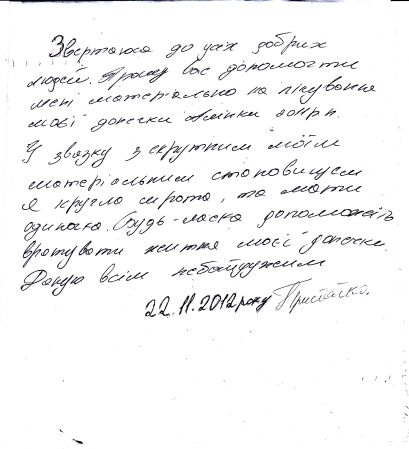 Звертаюся до усіх добрих
людей. Прошу вас допомогти
мені матеріально на лікування
моєї донечки Амінки 2011р.н.
У звязку з скрутним моїм
матеріальним становищем
Я кругла сирота, та мати
одиначка. Будь-ласка допоможіть
врятувати життя моєї донечки.
Дякую всім небайдужим
22.11.2012 року